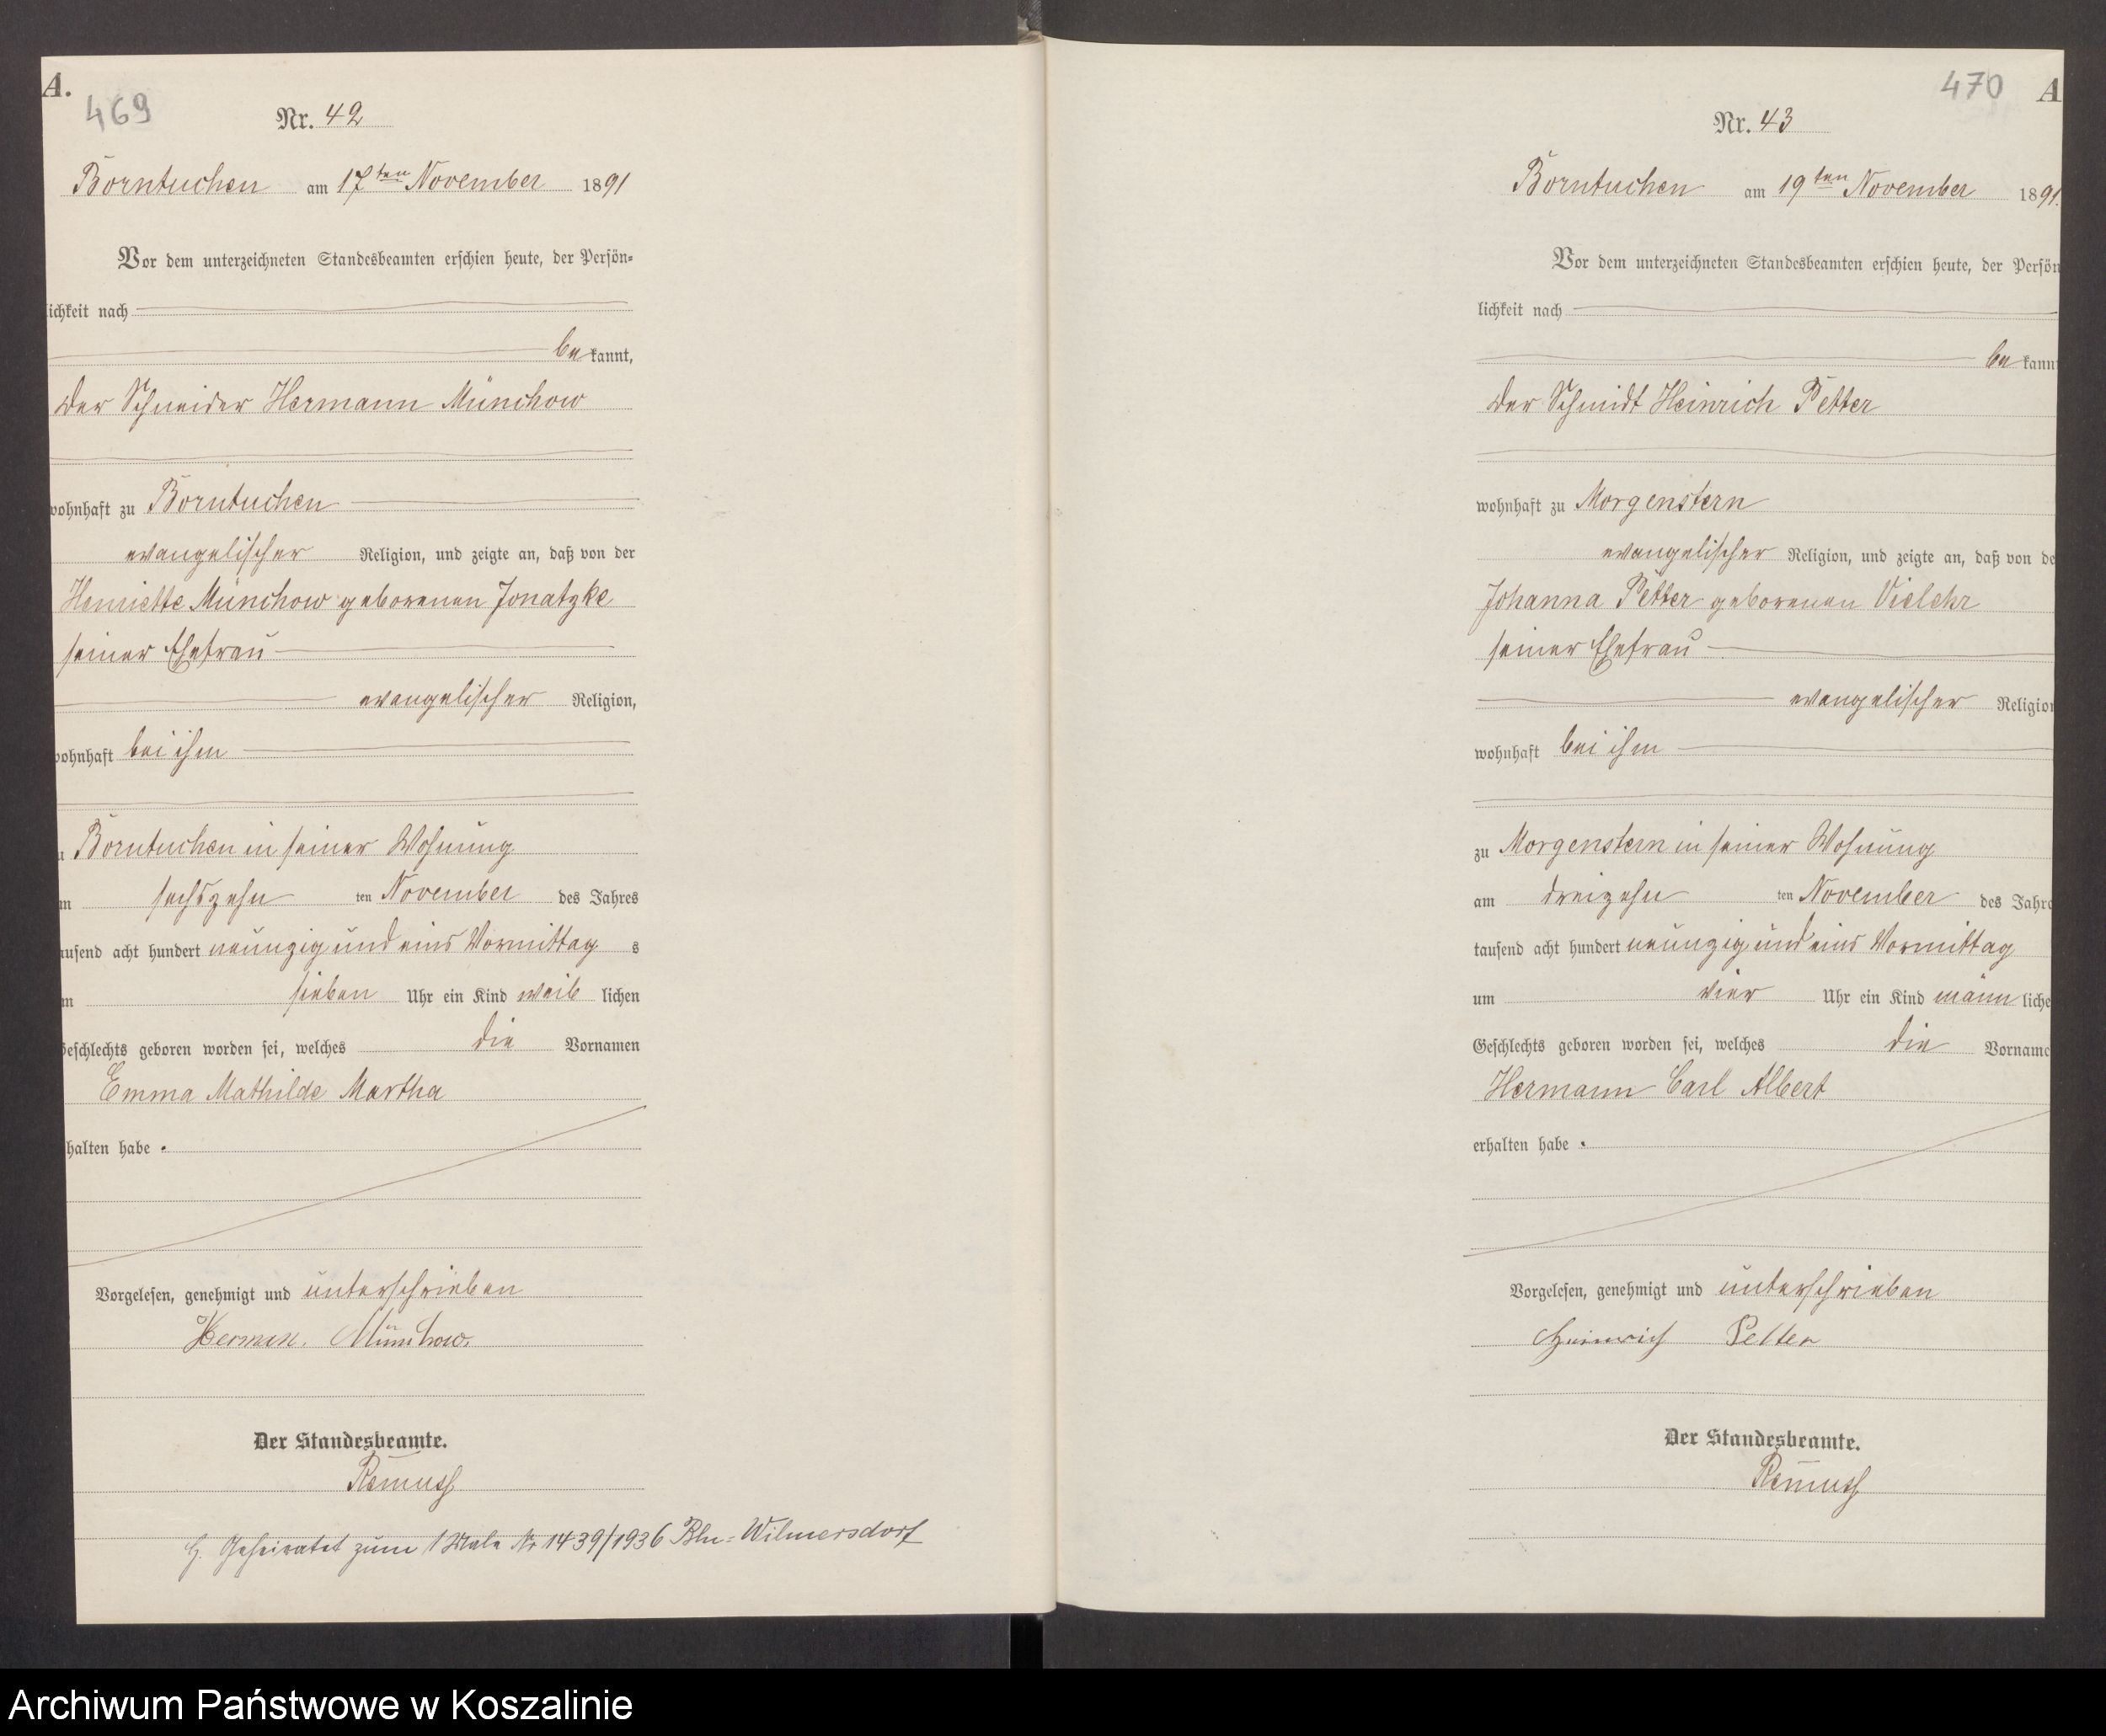 A.
469
Nr. 42
Borntuchen am 17ten November 1891
Vor dem unterzeichneten Standesbeamten erschien heute, der Persön-
lichkeit nach
be kannt,
der Schneider Hermann Münchow
wohnhaft zu Borntuchen
evangelischer Religion, und zeigte an, daß von der
Henriette Münchow geborenen Jonatzke
seiner Ehefrau
evangelischer Religion,
wohnhaft bei ihm
u Borntuchen in seiner Wohnung
m sechszehn ten November des Jahres
ausend acht hundert neunzig und eins Vormittag s
m sieben Uhr ein Kind weib lichen
Geschlechts geboren worden sei, welches die Vornamen
Emma Mathilde Martha
halten habe.
Vorgelesen, genehmigt und unterschrieben
Herman. Münchow.
Der Standesbeamte.
Remuss
G. Geheiratet zum 1 Male Nr 1439/1936 Bln-Wilmersdorf
470
A
Nr. 43
Borntuchen am 19ten November 1891.
Vor dem unterzeichneten Standesbeamten erschien heute, der Persön
lichkeit nach
be kann
der Schmidt Heinrich Petter
wohnhaft zu Morgenstern
evangelischer Religion, und zeigte an, daß von de
Johanna Petter geborenen Vielehr
seiner Ehefrau
evangelischer Religion
wohnhaft bei ihm
zu Morgenstern in seiner Wohnung
am dreizehn ten November des Jahre
tausend acht hundert neunzig und eins Vormittag
um vier Uhr ein Kind männ liche
Geschlechts geboren worden sei, welches die Vorname
Hermann Carl Albert
erhalten habe.
Vorgelesen, genehmigt und unterschrieben
Heinrich Petter
Der Standesbeamte.
Remuss
Archiwum Państwowe w Koszalinie